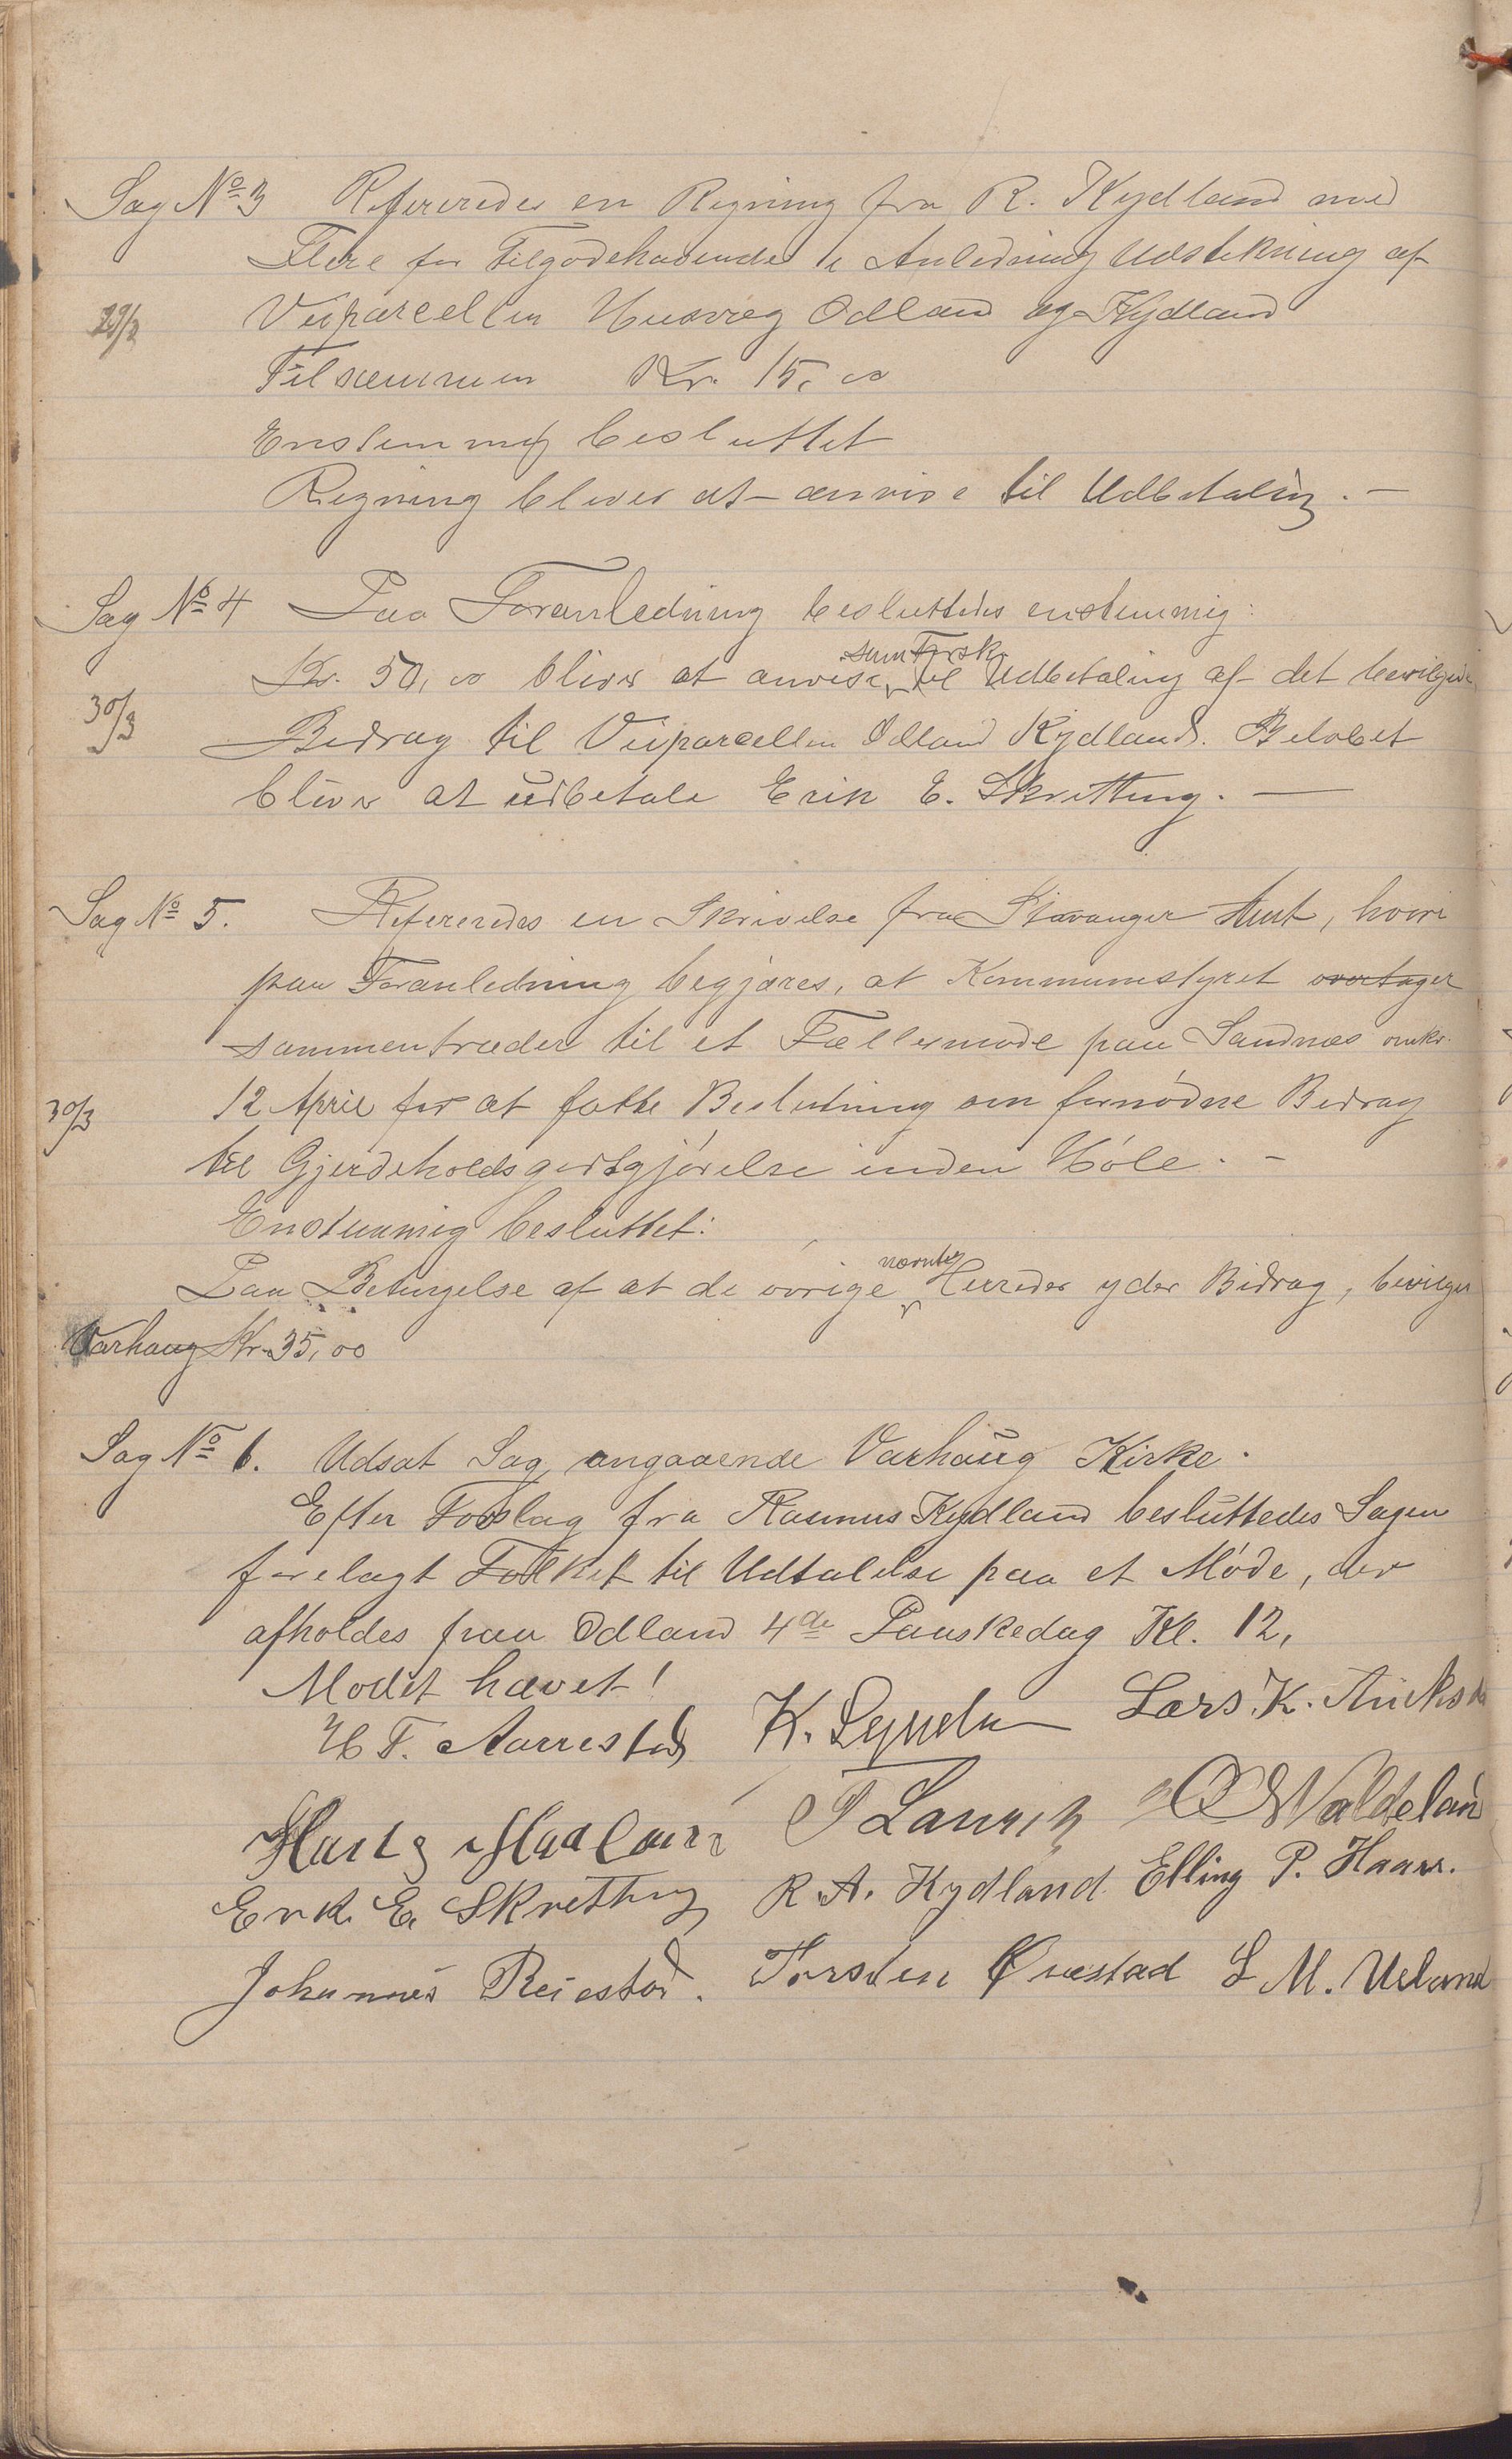 Sag No 3 Refereredes en Regning fra R. Kydland med
Flere for Tilgodehavende i Anledning Udstikning af
29/3 Veiparcellen Husvæg Odland og Kydland
Tilsammen Kr. 15,00
Enstemmig besluttet
Regning bliver at anvise til Udbetaling. —
Sag No 4 Paa Foranledning besluttedes enstemmig:
som Forsk.
Kr. 50,00 bliver at anvise til Udbetaling af det bevilgede
30/3 Bidrag til Veiparcellen Odland Kydland. Beløbet
bliver at udbetale Erik E. Skretting. —
Sag No 5. Refereredes en Skrivelse fra Stavanger Amt, hvori
paa Foranledning begjæres, at Kommunestyret overtager
sammentræder til et Fællesmøde paa Sandnæs omkr.
30/3 12 April for at fatte Beslutning om fornødne Bidrag
til Gjerdeholdsgodtgjørelse inden Høle. –
Enstemmig besluttet:
nævnte
Paa Betingelse af at de øvrige Herreder yder Bidrag, bevilger
Varhaug Kr. 35,00
Sag No 6. Udsat Sag angaaende Varhaug Kirke.
Efter Forslag fra Rasmus Kydland besluttedes Sagen
forelagt Folket til Udtalelse paa et Møde, der
afholdes paa Odland 4de Paaskedag Kl. 12,
Mødet hævet!
H T. Aarrestad K. Lars. K.
P W Valdeland
Erik E. Skretting R. A. Kydland Elling P. Haaar.
Johannes Reiestad. Torsten Ørestad S M. Ueland